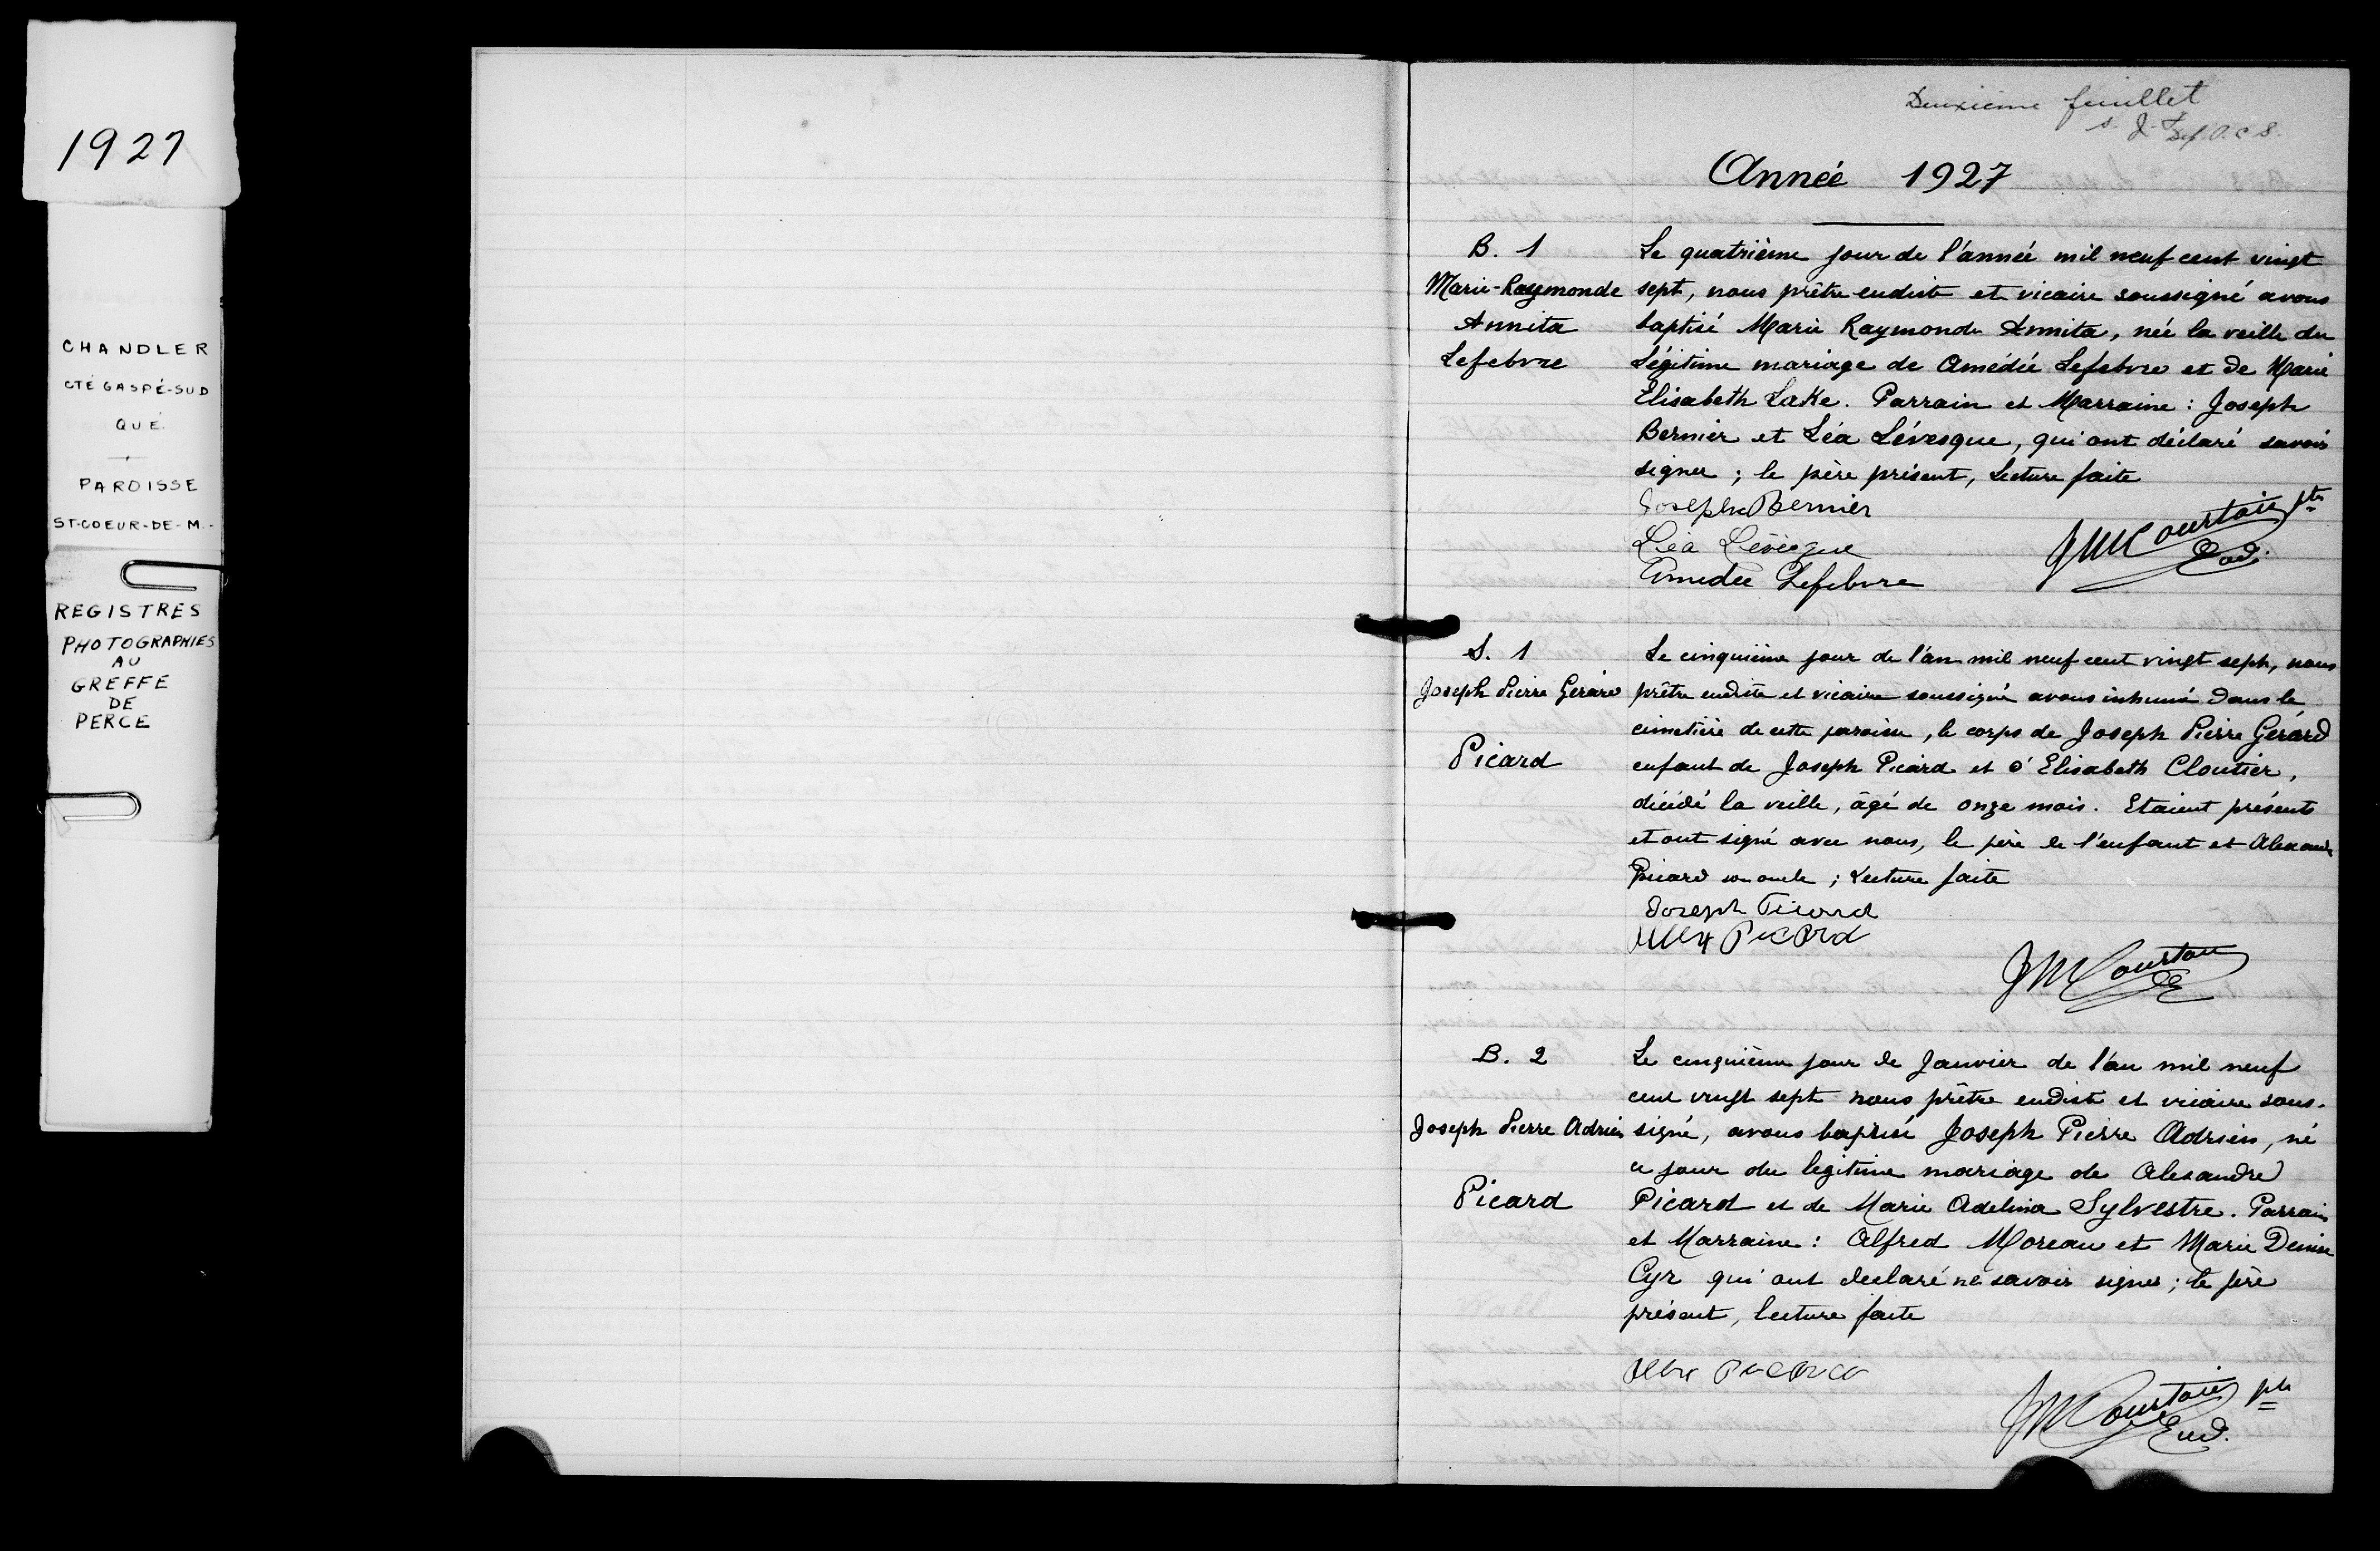 1927
CHANDLER
CTÉ GASPÉ-SUD
QUÉ.
PAROISSE
ST-COEUR-DE-M.-
REGISTRES
PHOTOGRAPHIES
AU
GREFFE
DE
PERCE
Deuxième feuillet
Année 1927
B. 1
Marie-Raymonde
Annita
Lefebvre
Le quatrième jour de l'année mil neuf cent vingt
sept, nous prêtre eudiste et vicaire soussigné avons
baptisé Marie Raymonde Annita, née la veille du
légitime mariage de Amédée Lefebvre et de Marie
Elisabeth Lake. Parrain et Marraine : Joseph
Bernier et Léa Lévesque, qui ont déclaré savoir
signer ; le père présent, Lecture faite
Joseph Bernier
Léa Lévesque
Amedée Lefebvre
JM Courtois ptr
Eud.
S. 1
Joseph Pierre Gérard
Picard
Le cinquième jour de l'an mil neuf cent vingt seph, nous
prêtre eudiste et vicaire soussigné avons inhumé dans le
cimetière de cette paroisse, le corps de Joseph Pierre Gérard
enfant de Joseph Picard et d'Elisabeth Cloutier,
décédé la veille, âgé de onze mois. Etaient présents
et ont signé avec nous, le père de l'enfant et Alexandre
Picard son oncle ; Lecture faite
Joseph Picard
Alex Picard
JM Courtois
B. 2
Joseph Pierre Adrien
Picard
Le cinquième jour de Janvier de l'an mil neuf
cent vingt sept nous prêtre eudiste et vicaire sous-
signé, avons baptisé Joseph Pierre Adrien, né
ce jour du legitime mariage de Alexandre
Picard et de Marie Adelina Sylvestre. Parrain
et Marraine : Alfred Moreau et Marie Denise
Cyr qui ont declaré ne savoir signer ; le père
présent, lecture faite
Alex Picard
JM Courtois ptr
Eud.